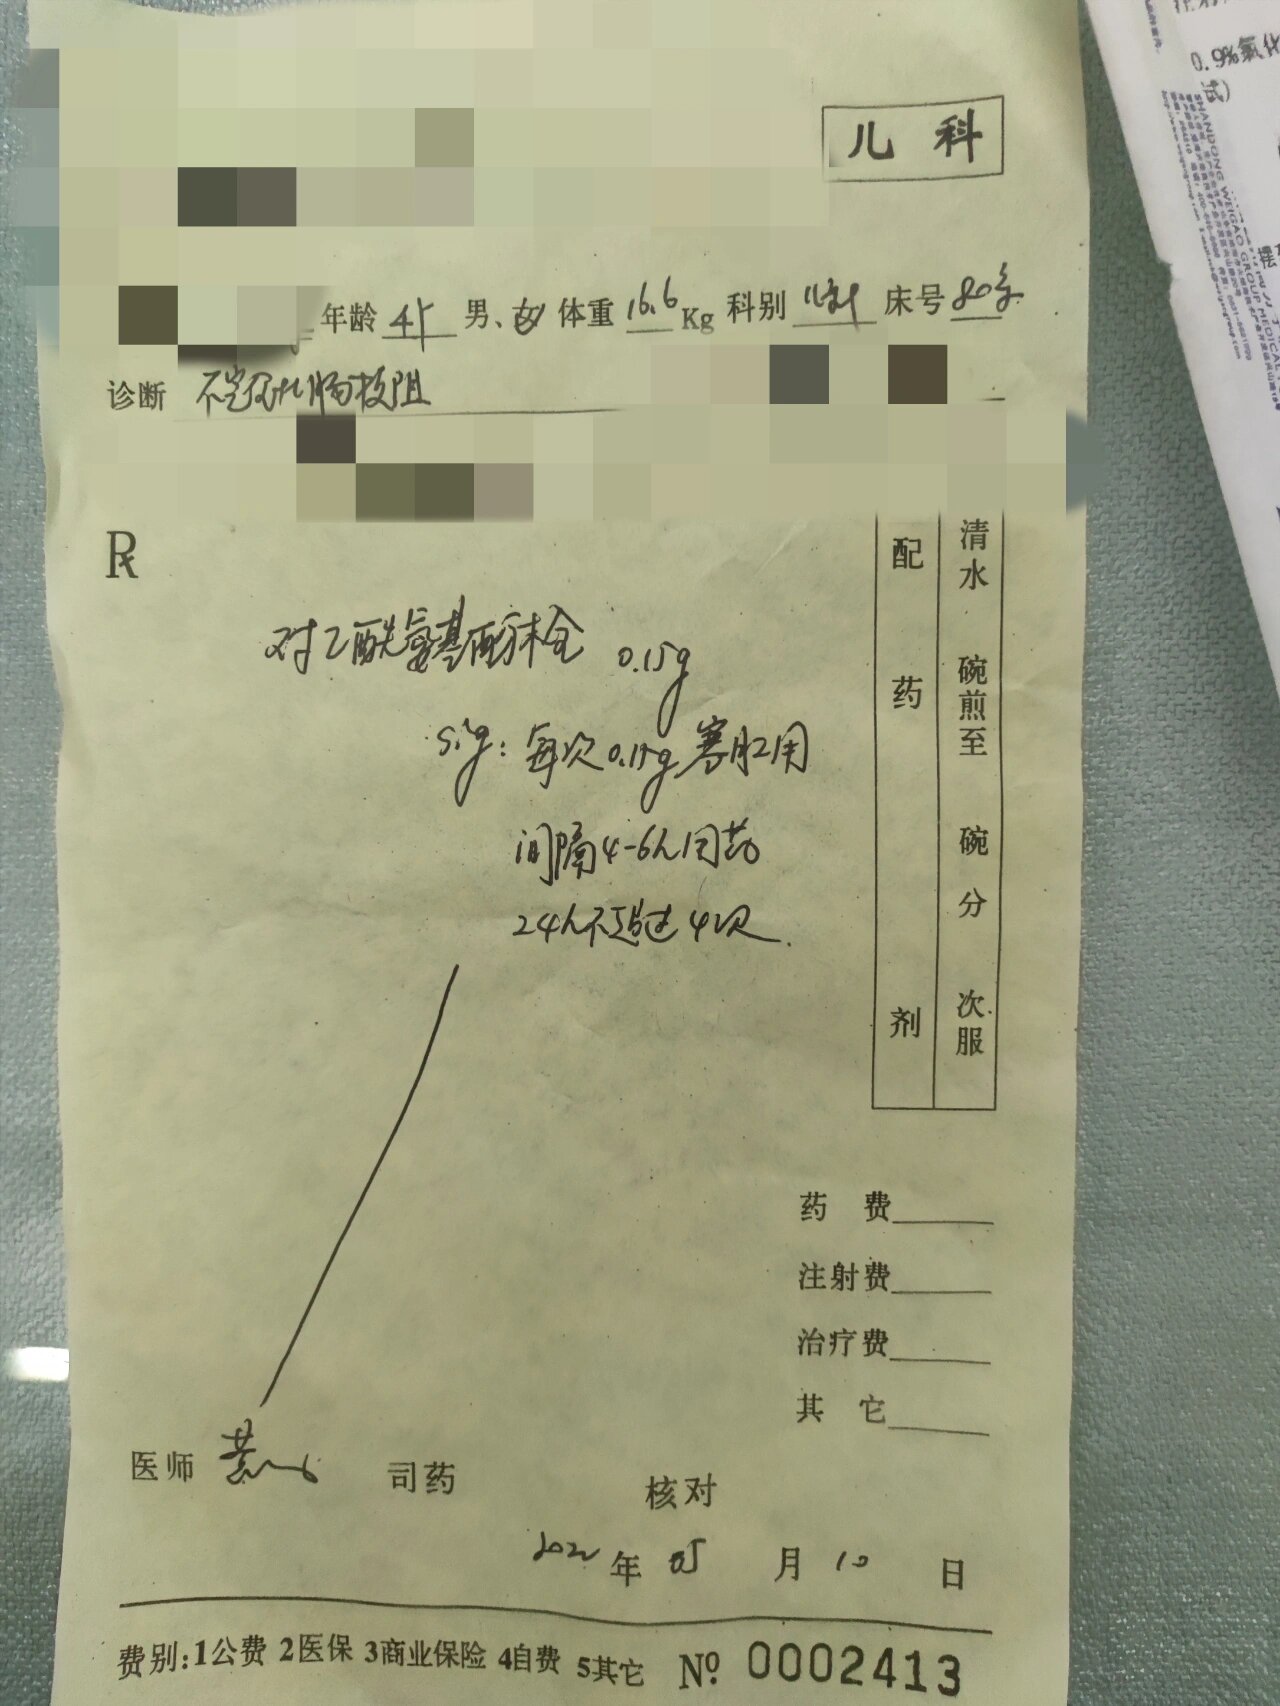 儿科
年龄 4岁 男、女 体重 16.6 Kg 科别 儿科 床号 80条
诊断 不完全性肠梗阻
R
对乙酰氨基酚栓 0.15g
sig: 每次0.15g 塞肛用
间隔4-6h 同药
24h不超过4次.
配药剂
清水 碗煎至 碗 分 次服
药 费
注射费
治疗费
其 它
医师 黄 司药 核对
2022 年 05 月 10 日
费别:1公费 2医保 3商业保险 4自费 5其它 Nº 0002413
0.9%氯化
试)
SHANDONG WEIGAO GROUP MEDICAL